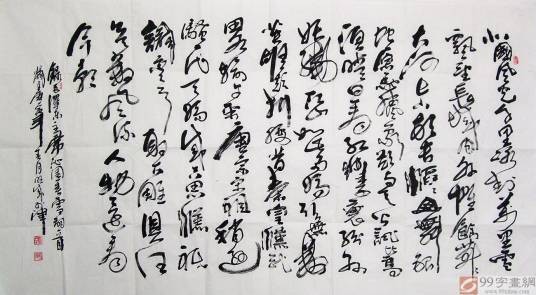 北國風光千里冰封萬里雪
飄望長城內外惟餘莽莽
大河上下頓失滔滔山舞銀
蛇原馳蠟象欲與天公試
須晴日看紅裝素裹分外
妖嬈江山如此多嬌引無數
英雄競折腰惜秦皇漢武
略輸文采唐宗宋祖稍遜
騷一代天驕成吉思汗祇
識彎弓射大雕俱往
矣數風流人物還看
今朝
錄毛澤東主席沁園春雪詞一首
99字畫網